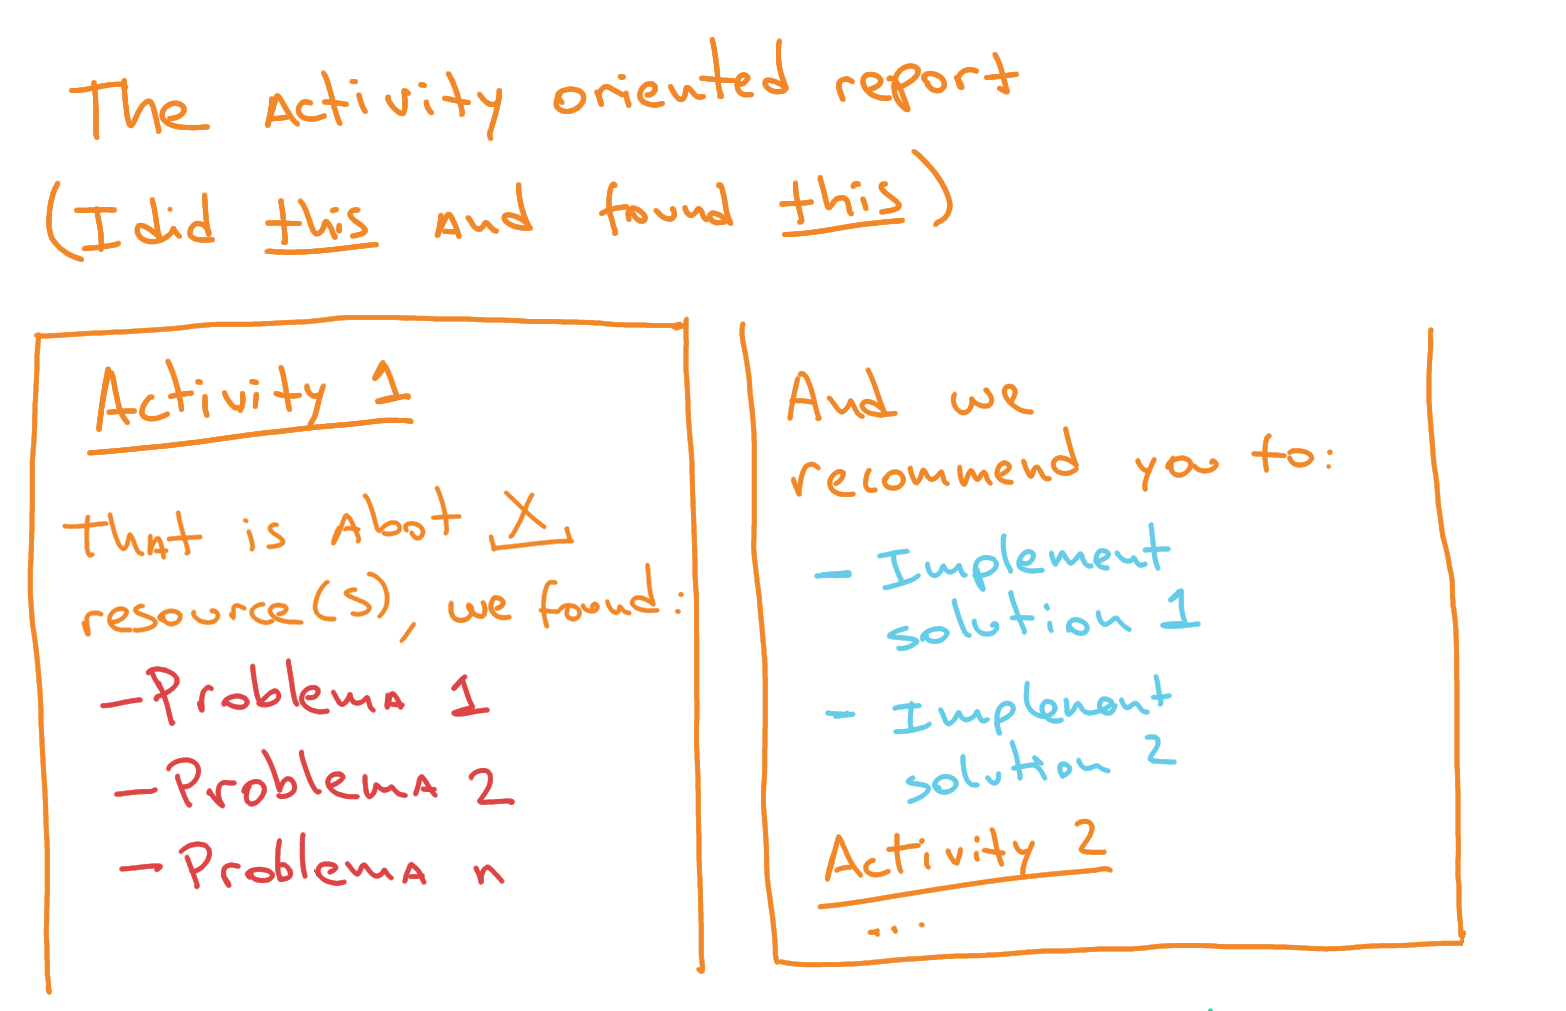 The Activity oriented report
(I did this and found this)
Activity 1
That is Abot X
resource(s), we found:
- Problema 1
- Problema 2
- Problema n
And we
recommend you to:
- Implement
solution 1
- Implement
solution 2
Activity 2
...